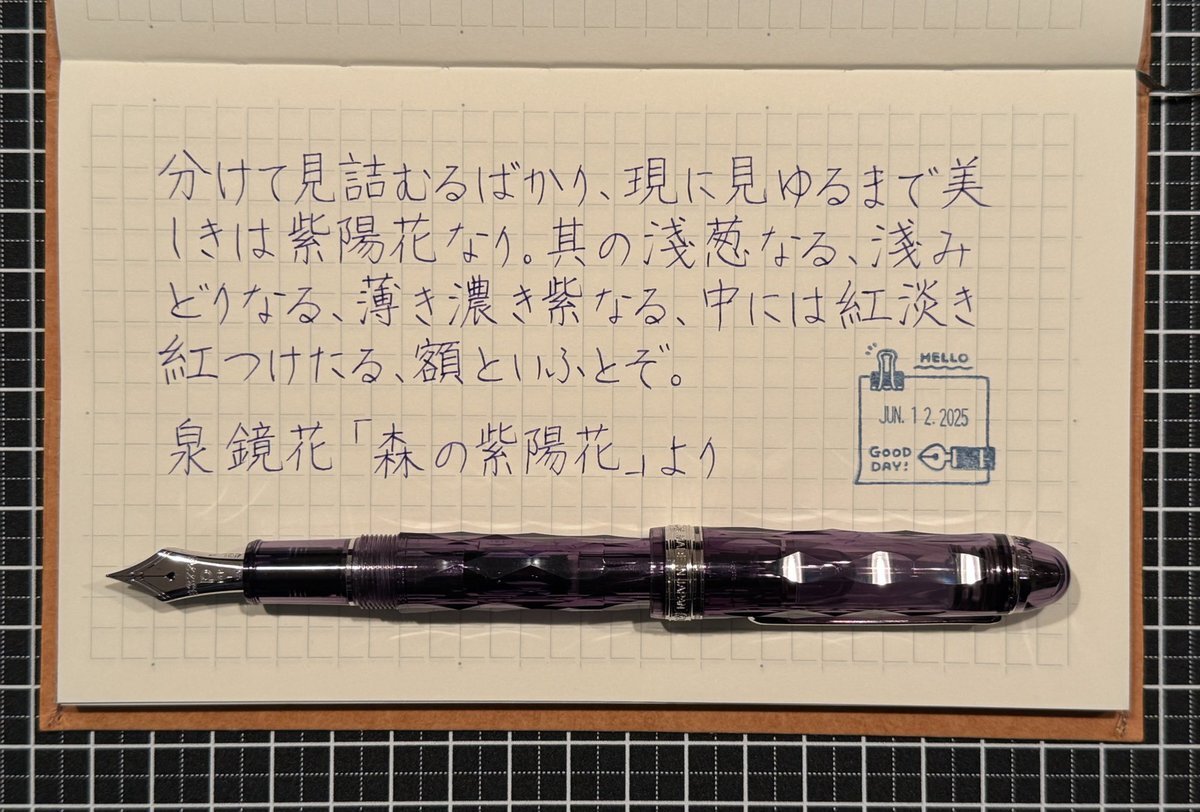 分けて見詰むるばかり、現に見ゆるまで美
しきは紫陽花なり。其の淺葱なる、淺み
どりなる、薄き濃き紫なる、中には紅淡き
紅つけたる、額といふとぞ。
泉鏡花「森の紫陽花」より
HELLO
JUN. 12. 2025
GOOD
DAY!